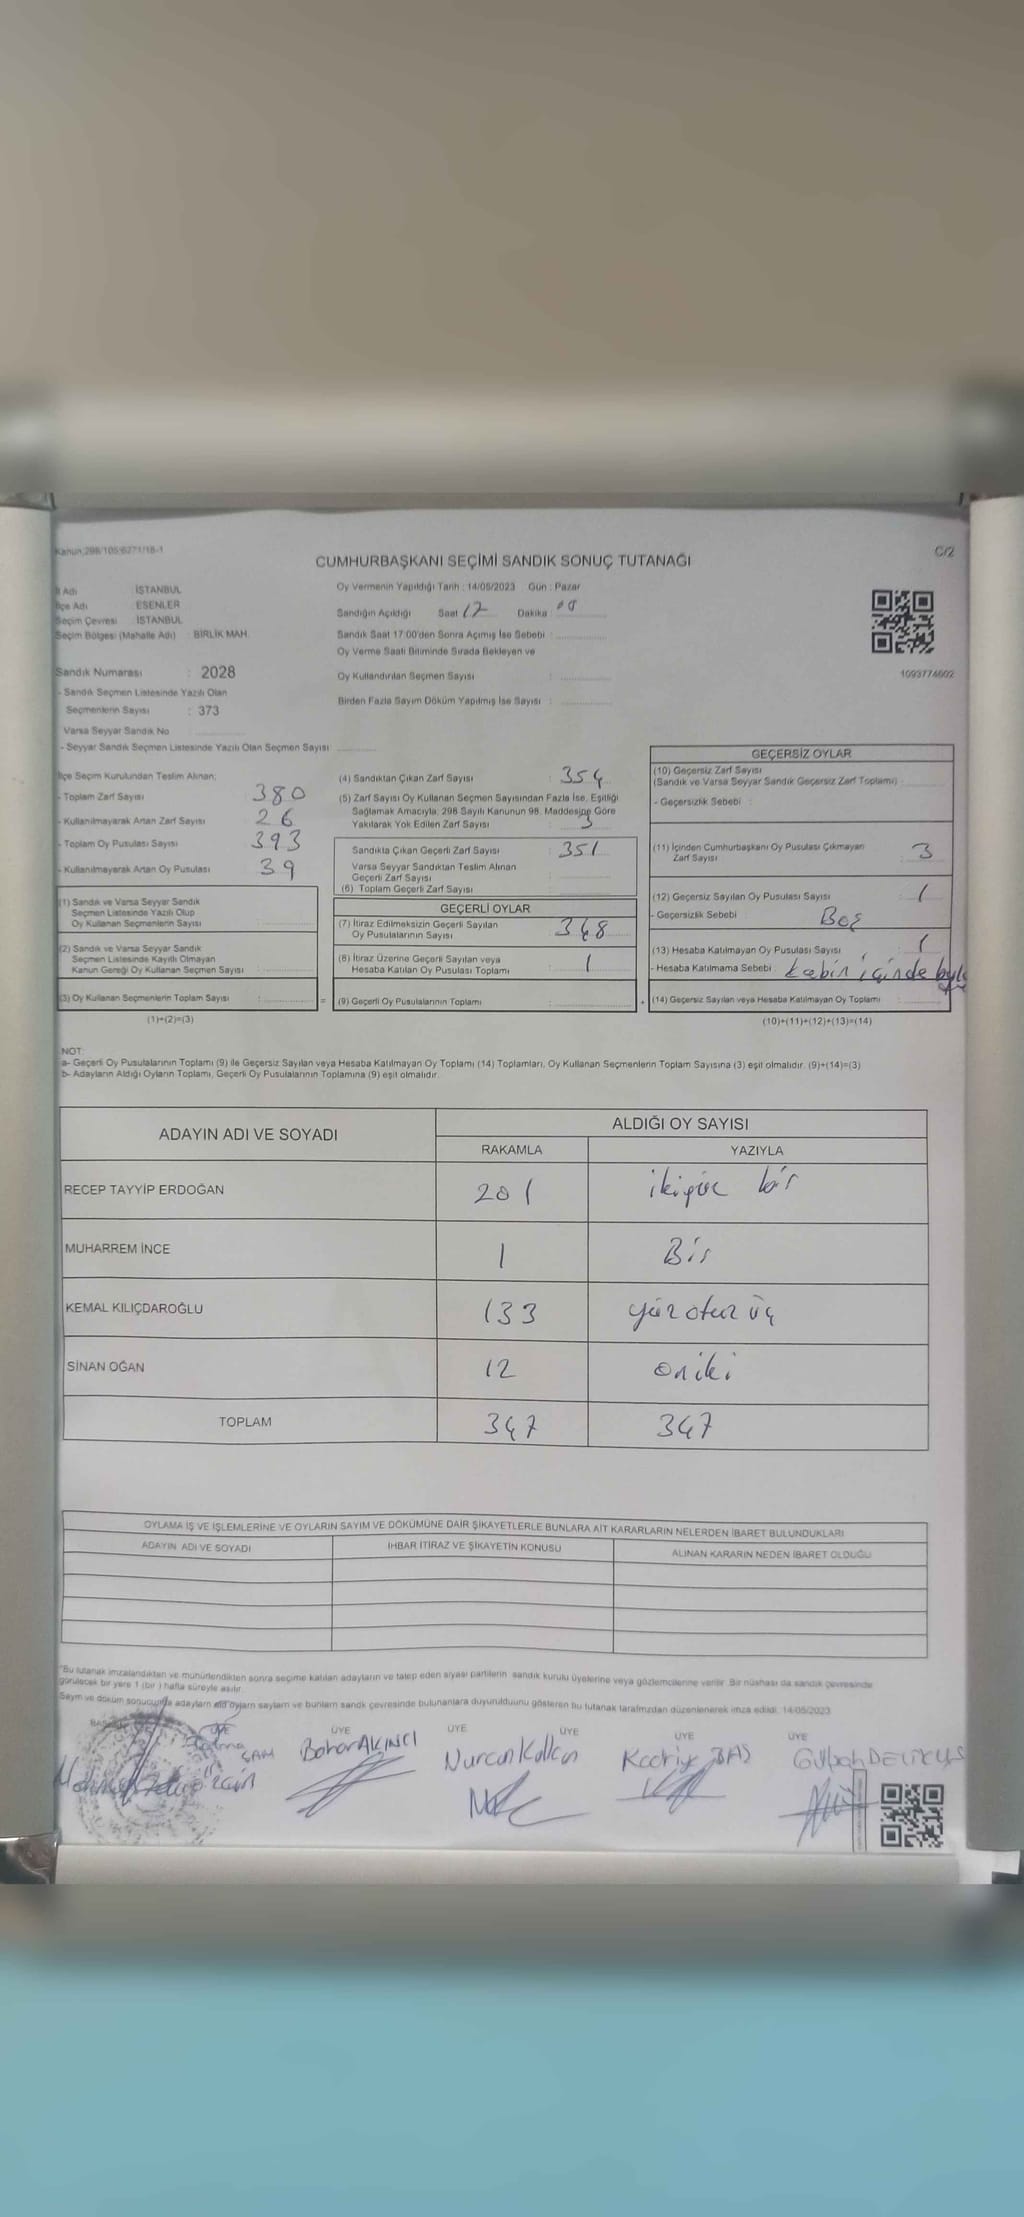 Kanun;298/105;6271/18-1
C/2
CUMHURBAŞKANI SEÇİMİ SANDIK SONUÇ TUTANAĞI
İl Adı : İSTANBUL
İlçe Adı : ESENLER
Seçim Çevresi : İSTANBUL
Seçim Bölgesi (Mahalle Adı) : BİRLİK MAH.
Sandık Numarası : 2028
- Sandık Seçmen Listesinde Yazılı Olan
Seçmenlerin Sayısı : 373
Varsa Seyyar Sandık No
- Seyyar Sandık Seçmen Listesinde Yazılı Olan Seçmen Sayısı
Oy Vermenin Yapıldığı Tarih : 14/05/2023 Gün : Pazar
Sandığın Açıldığı Saat 17 Dakika :
Sandık Saat 17:00'den Sonra Açımış İse Sebebi :
Oy Verme Saati Bitiminde Sırada Bekleyen ve
Oy Kullandırılan Seçmen Sayısı :
Birden Fazla Sayım Döküm Yapılmış İse Sayısı :
1093774602
İlçe Seçim Kurulundan Teslim Alınan;
- Toplam Zarf Sayısı 380
- Kullanılmayarak Artan Zarf Sayısı 26
- Toplam Oy Pusulası Sayısı 393
- Kullanılmayarak Artan Oy Pusulası 39
(1) Sandık ve Varsa Seyyar Sandık
Seçmen Listesinde Yazılı Olup
Oy Kullanan Seçmenlerin Sayısı :
(2) Sandık ve Varsa Seyyar Sandık
Seçmen Listesinde Kayıtlı Olmayan
Kanun Gereği Oy Kullanan Seçmen Sayısı :
(3) Oy Kullanan Seçmenlerin Toplam Sayısı : =
(1)+(2)=(3)
(4) Sandıktan Çıkan Zarf Sayısı : 354
(5) Zarf Sayısı Oy Kullanan Seçmen Sayısından Fazla İse, Eşitliği
Sağlamak Amacıyla; 298 Sayılı Kanunun 98. Maddesine Göre
Yakılarak Yok Edilen Zarf Sayısı : 3
Sandıkta Çıkan Geçerli Zarf Sayısı : 351
Varsa Seyyar Sandıktan Teslim Alınan
Geçerli Zarf Sayısı :
(6) Toplam Geçerli Zarf Sayısı :
GEÇERLİ OYLAR
(7) İtiraz Edilmeksizin Geçerli Sayılan
Oy Pusulalarının Sayısı : 348
(8) İtiraz Üzerine Geçerli Sayılan veya
Hesaba Katılan Oy Pusulası Toplamı : 1
(9) Geçerli Oy Pusulalarının Toplamı : +
GEÇERSİZ OYLAR
(10) Geçersiz Zarf Sayısı
(Sandık ve Varsa Seyyar Sandık Geçersiz Zarf Toplamı) :
- Geçersizlik Sebebi :
(11) İçinden Cumhurbaşkanı Oy Pusulası Çıkmayan
Zarf Sayısı : 3
(12) Geçersiz Sayılan Oy Pusulası Sayısı : 1
- Geçersizlik Sebebi : Boş
(13) Hesaba Katılmayan Oy Pusulası Sayısı : 1
- Hesaba Katılmama Sebebi : kabin içinde
(14) Geçersiz Sayılan veya Hesaba Katılmayan Oy Toplamı :
(10)+(11)+(12)+(13)=(14)
NOT:
a- Geçerli Oy Pusulalarının Toplamı (9) ile Geçersiz Sayılan veya Hesaba Katılmayan Oy Toplamı (14) Toplamları, Oy Kullanan Seçmenlerin Toplam Sayısına (3) eşit olmalıdır. (9)+(14)=(3)
b- Adayların Aldığı Oyların Toplamı, Geçerli Oy Pusulalarının Toplamına (9) eşit olmalıdır.
ADAYIN ADI VE SOYADI ALDIĞI OY SAYISI
RAKAMLA YAZIYLA
RECEP TAYYİP ERDOĞAN 201 ikiyüz bir
MUHARREM İNCE 1 Bir
KEMAL KILIÇDAROĞLU 133 yüzotuz üç
SİNAN OĞAN 12 oniki
TOPLAM 347 347
OYLAMA İŞ VE İŞLEMLERİNE VE OYLARIN SAYIM VE DÖKÜMÜNE DAİR ŞİKAYETLERLE BUNLARA AİT KARARLARIN NELERDEN İBARET BULUNDUKLARI
ADAYIN ADI VE SOYADI İHBAR İTİRAZ VE ŞİKAYETİN KONUSU ALINAN KARARIN NEDEN İBARET OLDUĞU
"Bu tutanak imzalandıktan ve mühürlendikten sonra seçime katılan adayların ve talep eden siyasi partilerin sandık kurulu üyelerine veya gözlemcilerine verilir. Bir nüshası da sandık çevresinde
görülecek bir yere 1 (bir) hafta süreyle asılır.
Sayım ve döküm sonucunda adayların ald oyların sayların ve bunların sandık çevresinde bulunanlara duyurulduunu gösteren bu tutanak tarafmızdan düzenlenerek imza edildi. 14/05/2023
ÜYE ÜYE ÜYE ÜYE ÜYE ÜYE
ÇAM Bahar AKINCI Nurcan Kadriye BAŞ